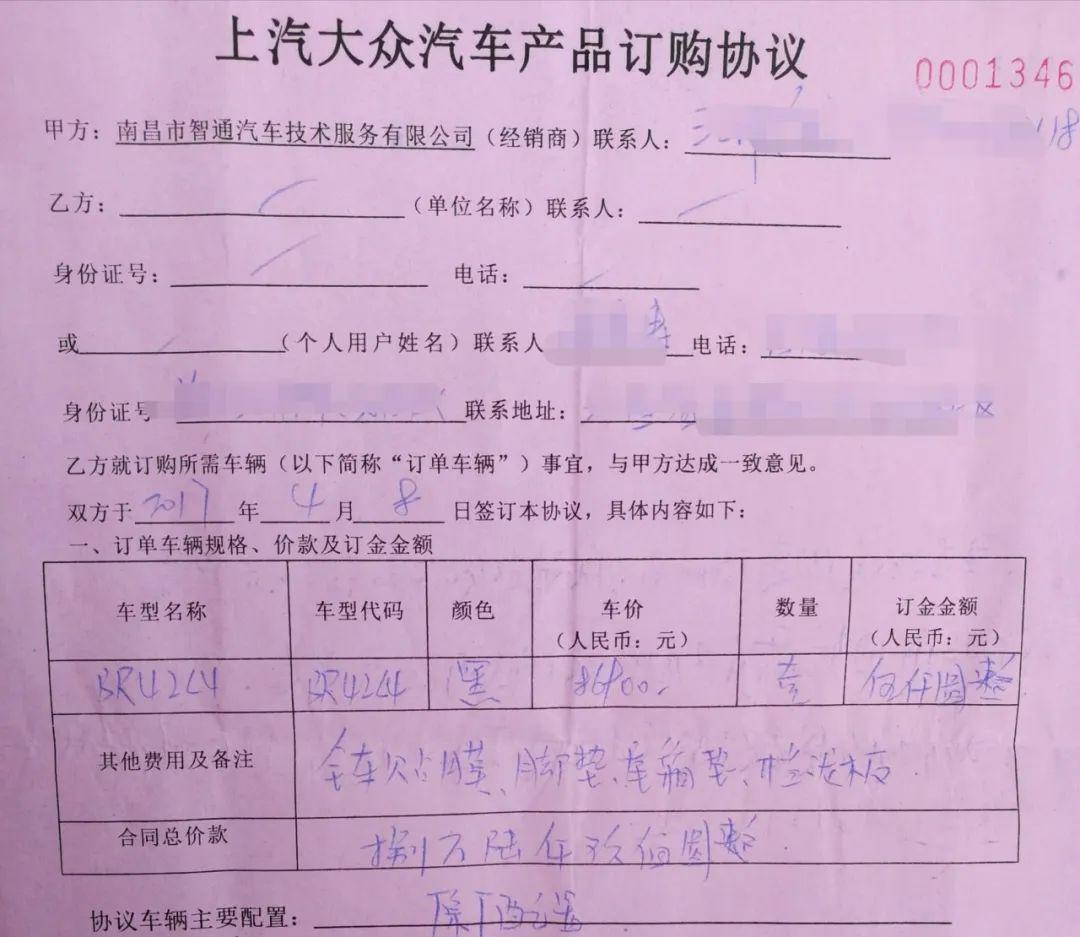 上汽大众汽车产品订购协议
0001346
甲方：南昌市智通汽车技术服务有限公司（经销商）联系人：
乙方：（单位名称）联系人：
身份证号： 电话：
或（个人用户姓名）联系人 电话：
身份证号 联系地址：
乙方就订购所需车辆（以下简称“订单车辆”）事宜，与甲方达成一致意见。
双方于2017年4月8日签订本协议，具体内容如下：
一、订单车辆规格、价款及订金金额
车型名称 车型代码 颜色 车价（人民币：元） 数量 订金金额（人民币：元）
BR42C4 BR42C4 黑 86900. 壹 伍仟圆整
其他费用及备注 全车贴膜、脚垫、车箱垫、挡泥板
合同总价款 捌万陆仟玖佰圆整
协议车辆主要配置：